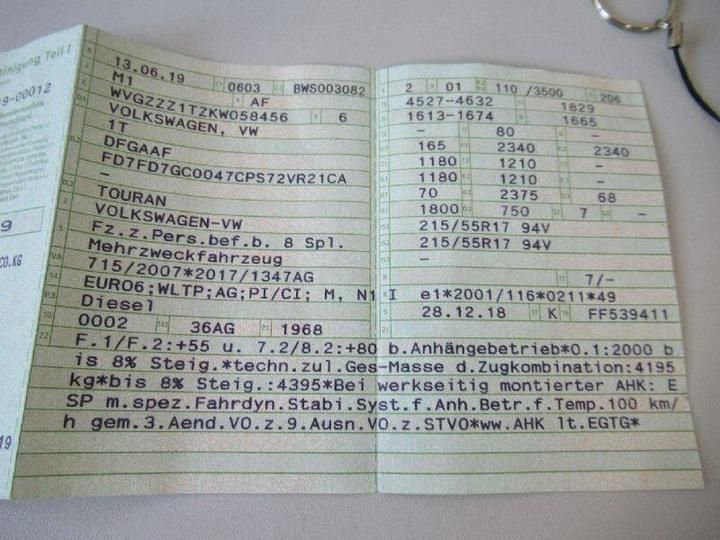 einigung Teil I
9-00012
9
CO.KG
19
13.06.19 0603 BWS003082
M1 AF
WVGZZZ1TZKW058456 6
VOLKSWAGEN, VW
1T
DFGAAF
FD7FD7GC0047CPS72VR21CA
–
TOURAN
VOLKSWAGEN-VW
Fz.z.Pers.bef.b. 8 Spl.
Mehrzweckfahrzeug
715/2007*2017/1347AG
EURO6;WLTP;AG;PI/CI; M, N1 I
Diesel
0002 36AG 1968
2 01 110 /3500 206
4527-4632 1829
1613-1674 1665
– 80 –
165 2340 2340
1180 1210 –
1180 1210 –
70 2375 68
1800 750 7 –
215/55R17 94V
215/55R17 94V
–
7/–
e1*2001/116*0211*49
28.12.18 K FF539411
F.1/F.2:+55 u. 7.2/8.2:+80 b.Anhängebetrieb*O.1:2000 b
is 8% Steig.*techn.zul.Ges-Masse d.Zugkombination:4195
kg*bis 8% Steig.:4395*Bei werkseitig montierter AHK: E
SP m.spez.Fahrdyn.Stabi.Syst.f.Anh.Betr.f.Temp.100 km/
h gem.3.Aend.VO.z.9.Ausn.VO.z.STVO*ww.AHK lt.EGTG*